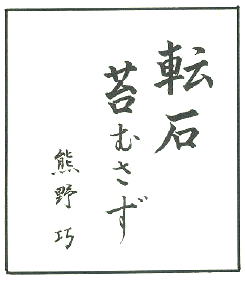 転石
苔むさず
熊野巧